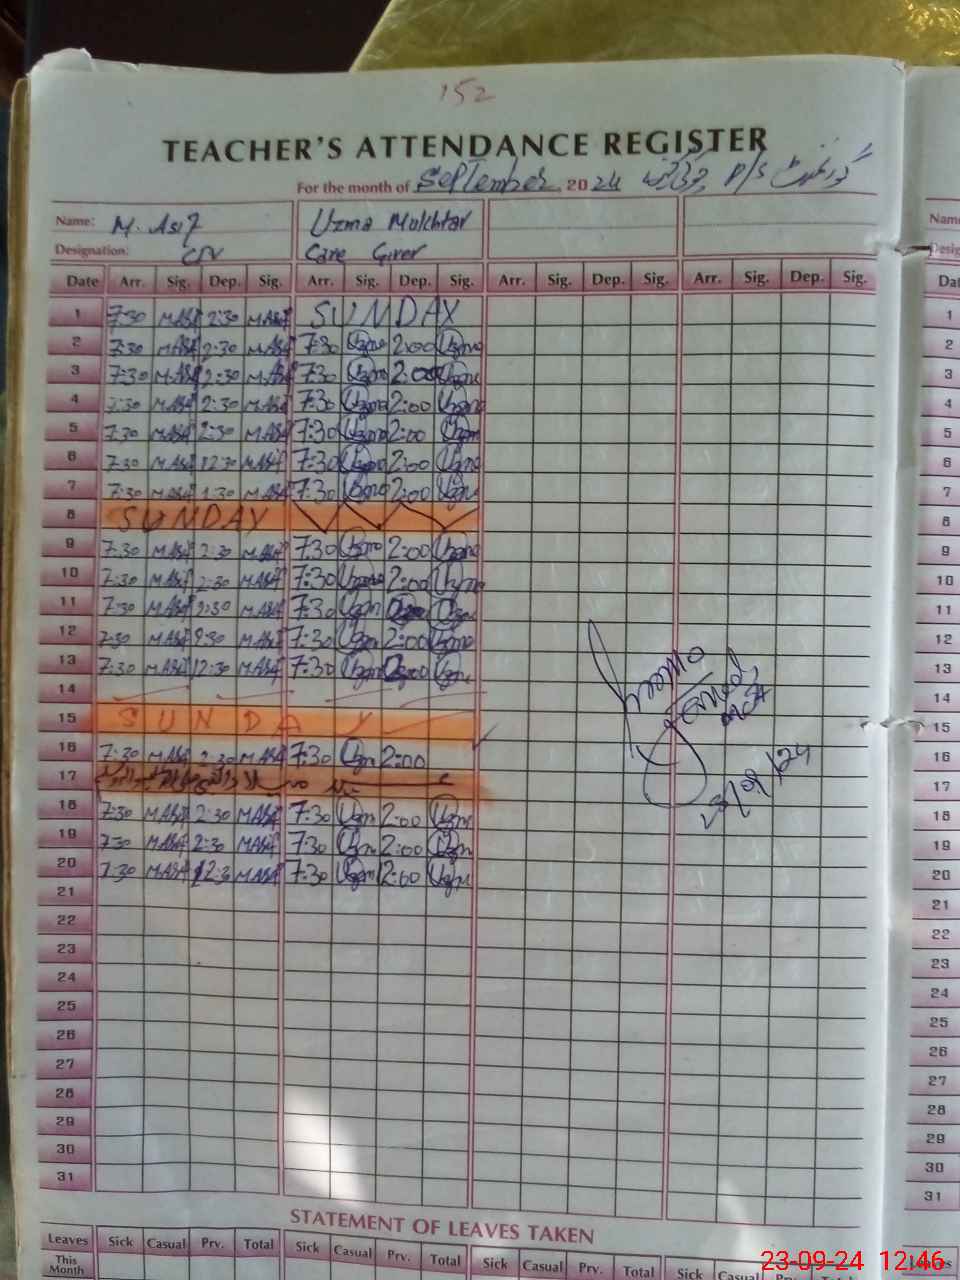 152
TEACHER'S ATTENDANCE REGISTER
For the month of September, 2024 P/S گورنمنٹ
Name: M. Asif Uzma Mukhtar
Designation: Care Giver
Date Arr. Sig. Dep. Sig. Arr. Sig. Dep. Sig. Arr. Sig. Dep. Sig. Arr. Sig. Dep. Sig.
1 7:30 M.ASif 2:30 M.ASif SUNDAY
2 7:30 M.ASif 2:30 M.ASif 7:30 Uzma 2:00 Uzma
3 7:30 M.ASif 2:30 M.ASif 7:30 Uzma 2:00 Uzma
4 7:30 M.ASif 2:30 M.ASif 7:30 Uzma 2:00 Uzma
5 7:30 M.ASif 2:30 M.ASif 7:30 Uzma 2:00 Uzma
6 7:30 M.ASif 12:30 M.ASif 7:30 Uzma 2:00 Uzma
7 7:30 M.ASif 1:30 M.ASif 7:30 Uzma 2:00 Uzma
8 SUNDAY
9 7:30 M.ASif 2:30 M.ASif 7:30 Uzma 2:00 Uzma
10 7:30 M.ASif 2:30 M.ASif 7:30 Uzma 2:00 Uzma
11 7:30 M.ASif 2:30 M.ASif 7:30 Uzma Uzma
12 7:30 M.ASif 2:30 M.ASif 7:30 Uzma 2:00 Uzma
13 7:30 M.ASif 12:30 M.ASif 7:30 Uzma Uzma
14
15 SUNDAY
16 7:30 M.ASif 2:30 M.ASif 7:30 Uzma 2:00
17
18 7:30 M.ASif 2:30 M.ASif 7:30 Uzma 2:00 Uzma
19 7:30 M.ASif 2:30 M.ASif 7:30 Uzma 2:00 Uzma
20 7:30 M.ASif 12:30 M.ASif 7:30 Uzma 2:00 Uzma
21
22
23
24
25
26
27
28
29
30
31
23/09/24
STATEMENT OF LEAVES TAKEN
Leaves Sick Casual Prv. Total Sick Casual Prv. Total Sick Casual Prv. Total Sick Casual
This Month
Name
1
2
3
4
5
6
7
8
9
10
11
12
13
14
15
16
17
18
19
20
21
22
23
24
25
26
27
28
29
30
31
Leaves
23-09-24 12:46